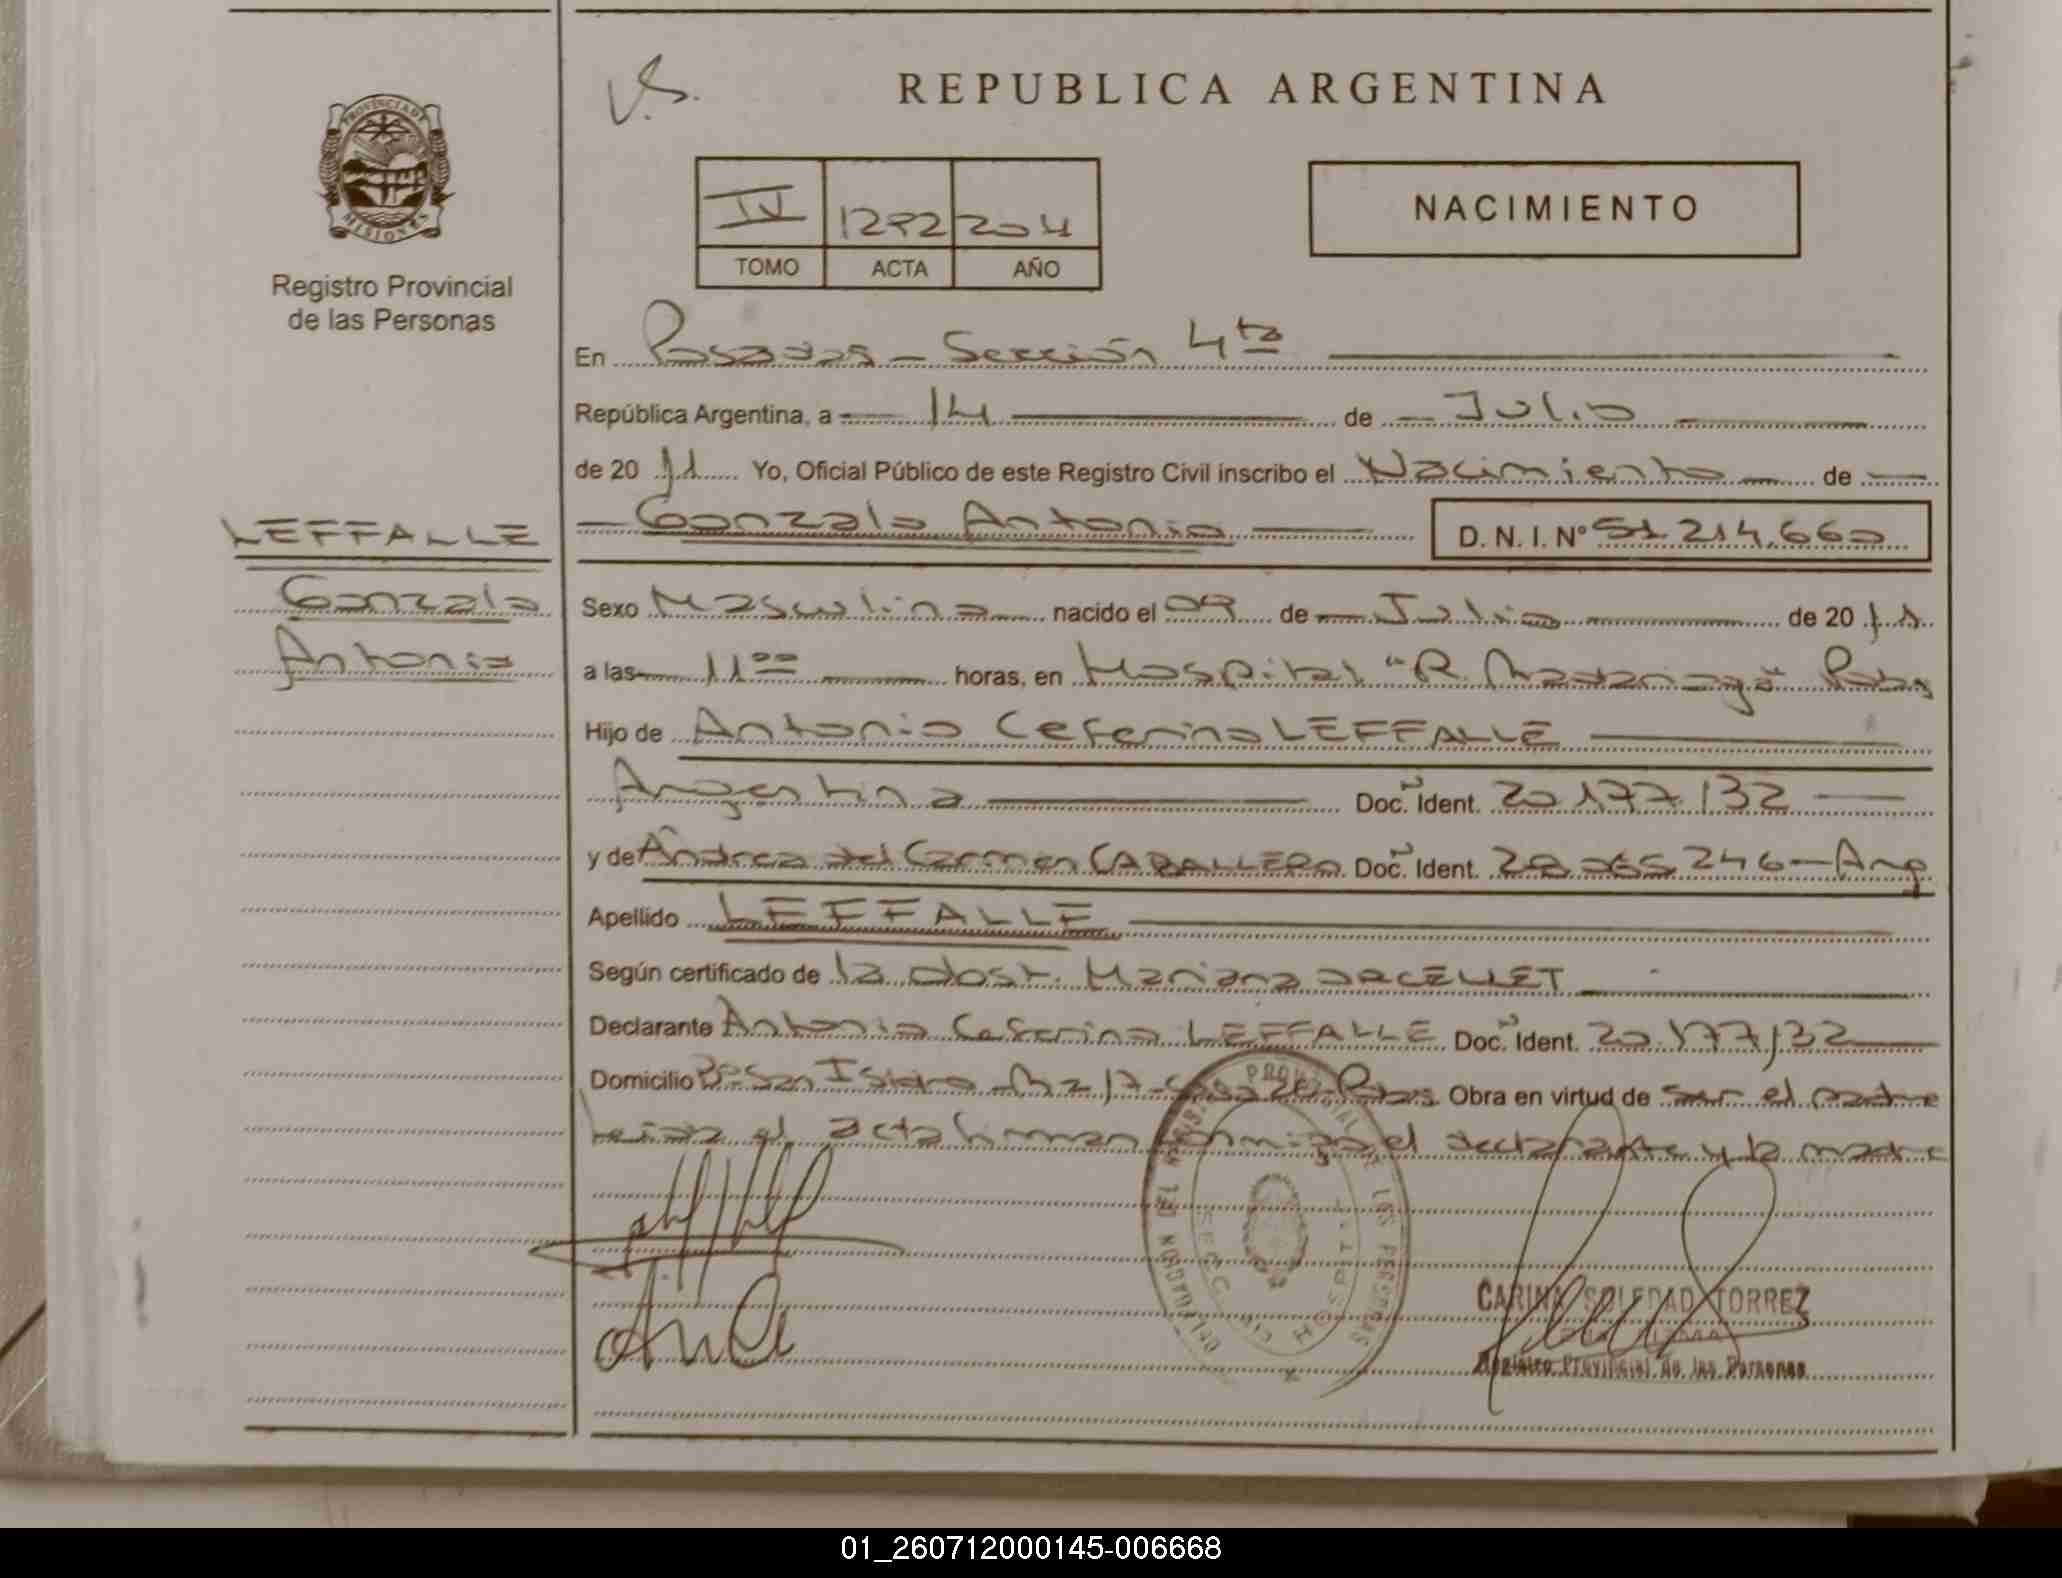 PROVINCIA DE
MISIONES
Registro Provincial
de las Personas
LEFFALLE
Gonzalo
Antonio
V.S.
REPUBLICA ARGENTINA
IV 1292 2011
TOMO ACTA AÑO
NACIMIENTO
En Posadas - Sección 4ta
República Argentina, a 14 de Julio
de 20 11 Yo, Oficial Público de este Registro Civil inscribo el Nacimiento de
Gonzalo Antonio D. N. I. Nº 51.214.660
Sexo Masculino nacido el 09 de Julio de 20 11
a las 11 00 horas, en Hospital "R. Madariaga" Pdas
Hijo de Antonio Ceferino LEFFALLE
Argentina Doc. Ident. 20.177.132
y de Andrea del Carmen CABALLERO Doc. Ident. 28.065.246 - Arg
Apellido LEFFALLE
Según certificado de la obst. Mariana
Declarante Antonio Ceferino LEFFALLE Doc. Ident. 20.177.132
Domicilio Bº San Isidro - Mz 17 - Casa 20 - Pdas. Obra en virtud de ser el padre
leída el acta firman conmigo el declarante y la madre
CARINA SOLEDAD TORREZ
Registro Provincial de las Personas
01_260712000145-006668